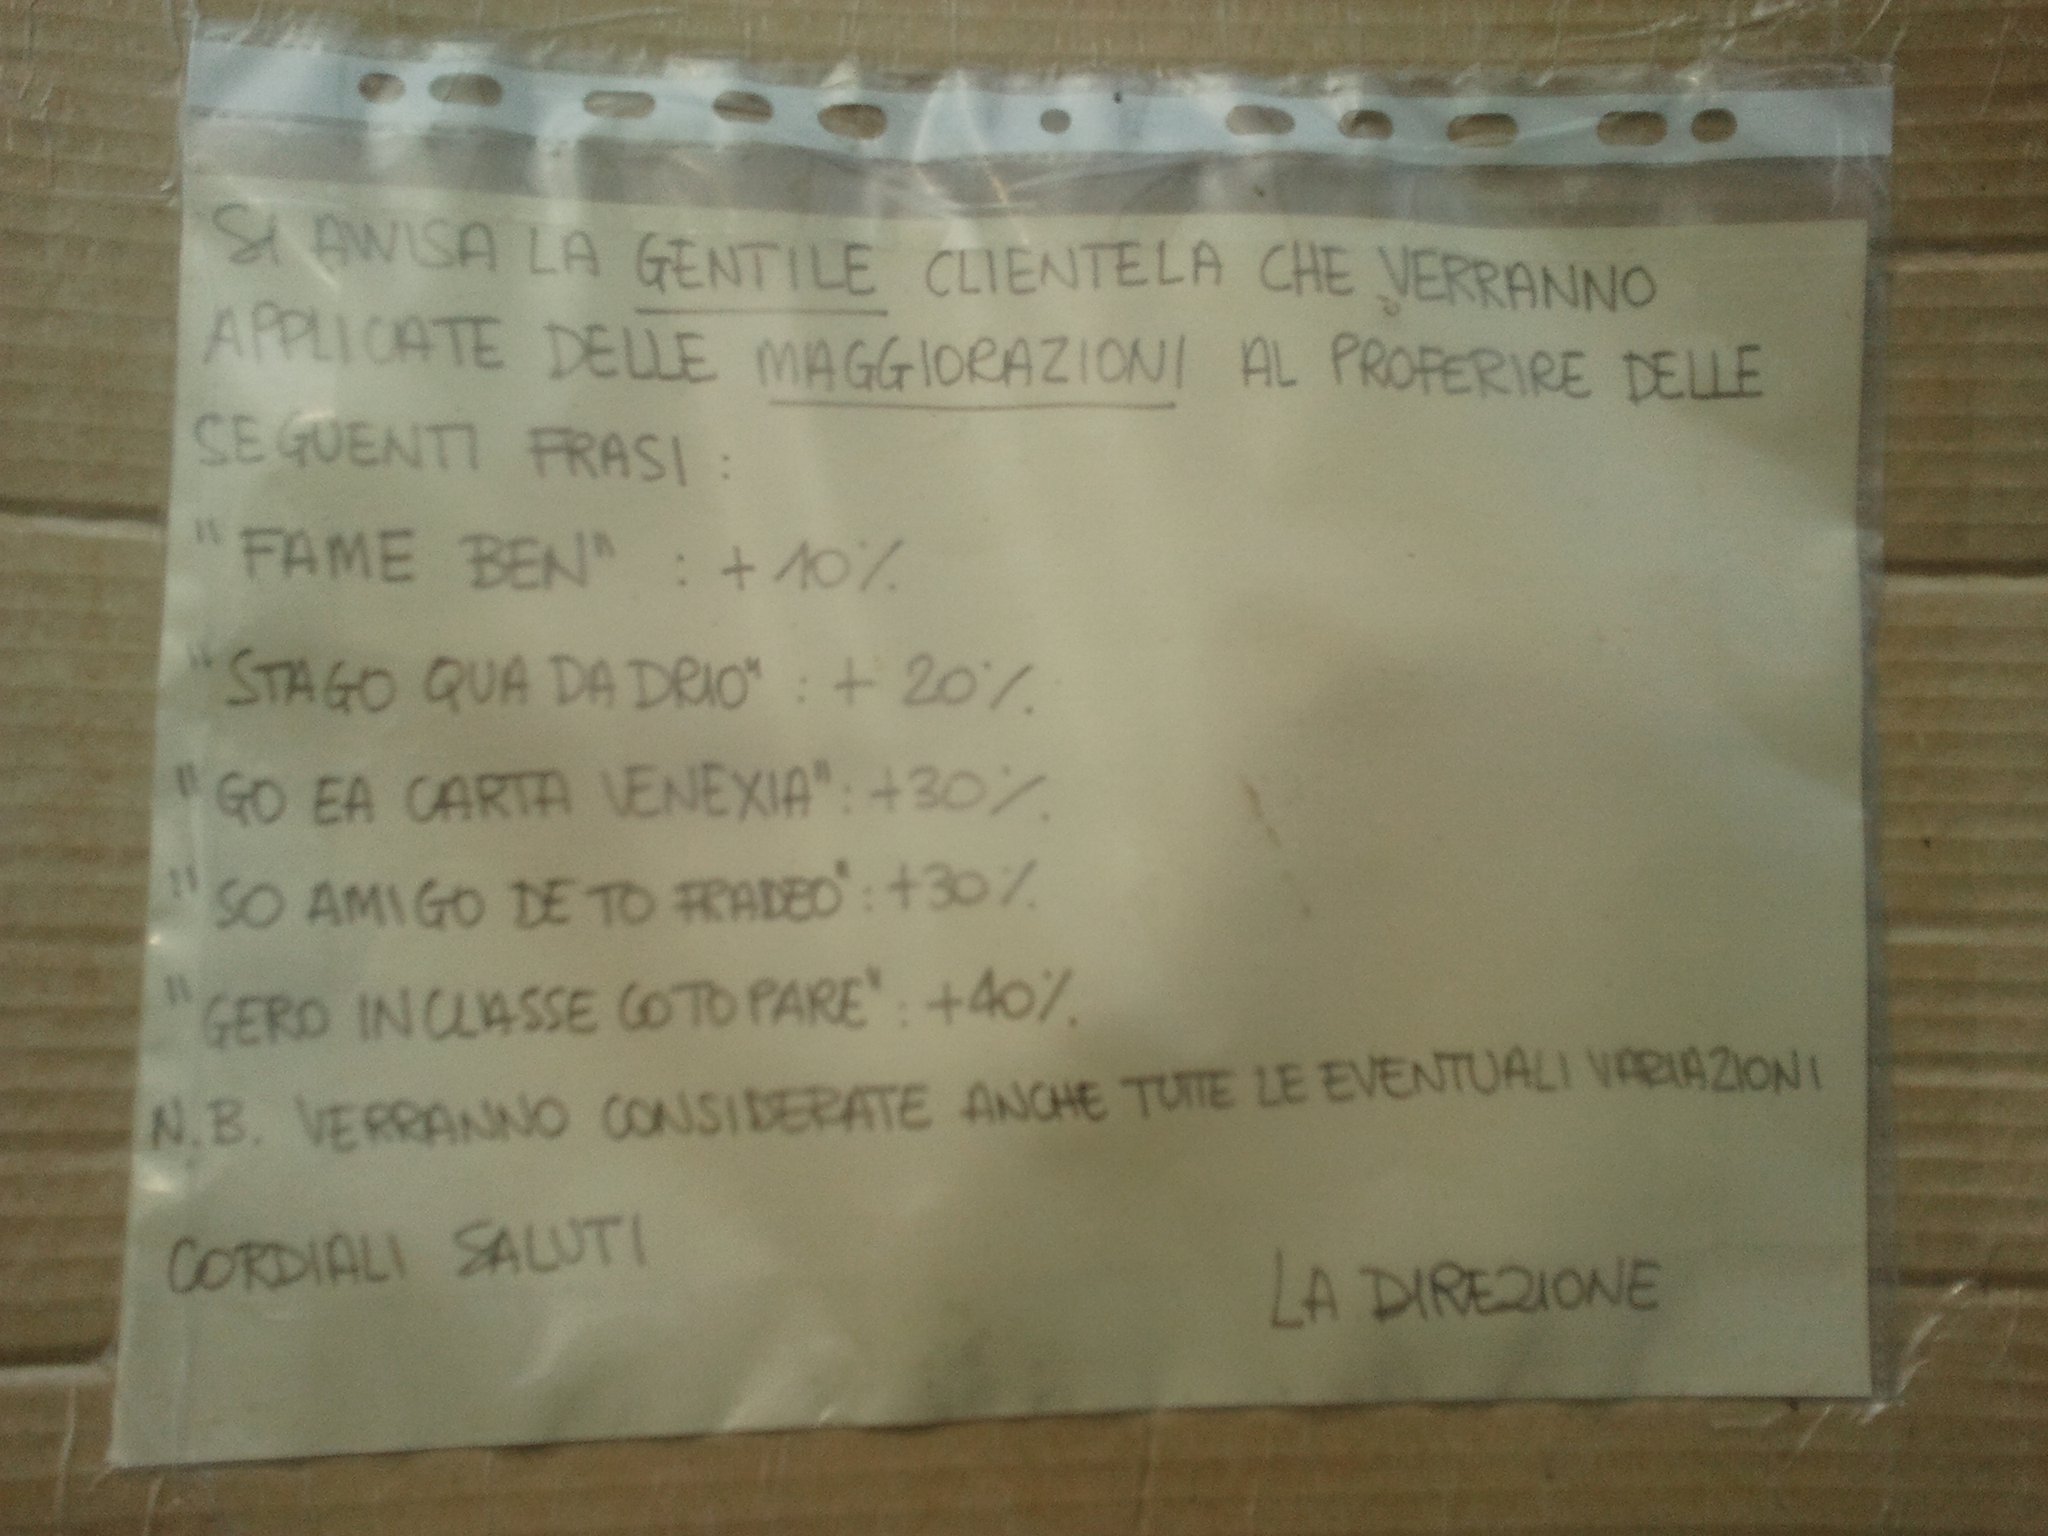 SI AVVISA LA GENTILE CLIENTELA CHE VERRANNO
APPLICATE DELLE MAGGIORAZIONI AL PROFERIRE DELLE
SEGUENTI FRASI :
"FAME BEN" : +10%
"STAGO QUA DA DRIO" : + 20%
"GO EA CARTA VENEXIA" : +30%
"SO AMIGO DE TO FRADEO" : +30%
"GERO IN CLASSE CO TO PARE" : +40%
N.B. VERRANNO CONSIDERATE ANCHE TUTTE LE EVENTUALI VARIAZIONI
CORDIALI SALUTI
LA DIREZIONE